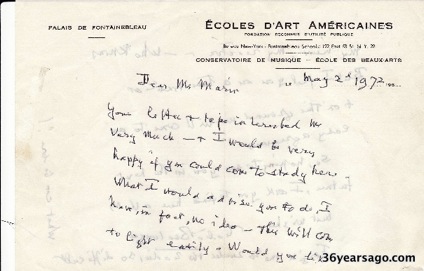 PALAIS DE FONTAINEBLEAU
ÉCOLES D'ART AMÉRICAINES
FONDATION RECONNUE D'UTILITÉ PUBLIQUE
CONSERVATOIRE DE MUSIQUE - ÉCOLE DES BEAUX-ARTS
Dear Mr
May 2d 1972
Your letter & tape interested me
very much - & I would be very
happy if you could come to study here.
What I would advise you to do, I
have, in fact, no idea - This will come
to light easily. Would you
36yearsago.com